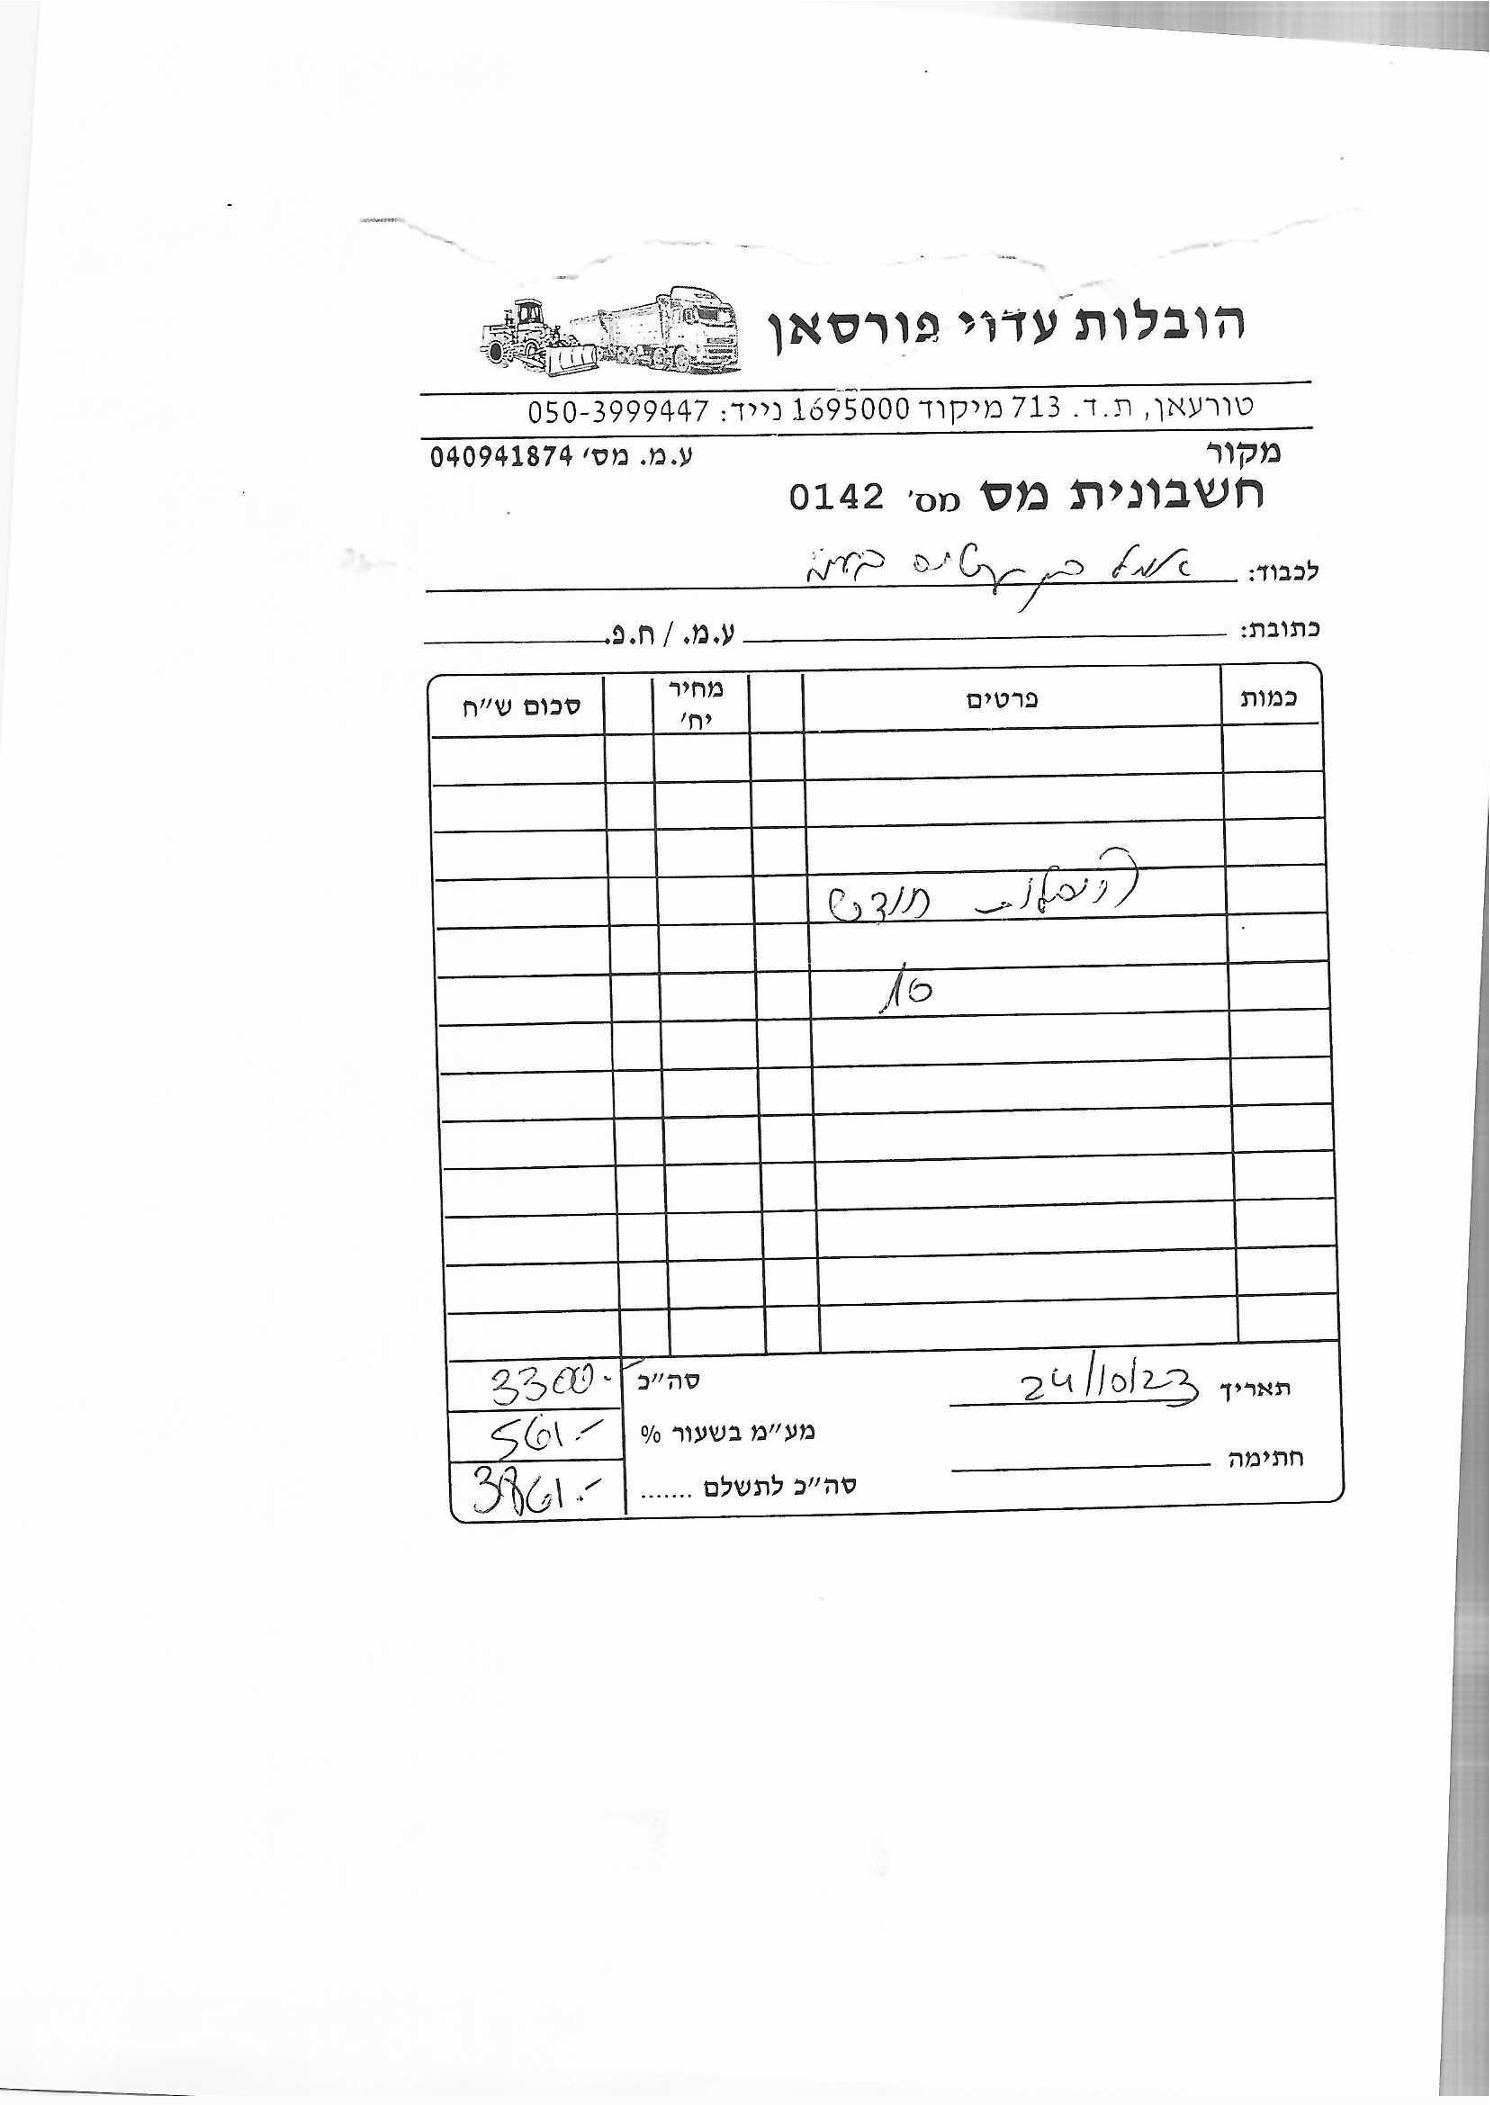 הובלות עדוי פורסאן
טורעאן, ת.ד. 713 מיקוד 1695000 נייד: 050-3999447
מקור ע.מ. מס׳ 040941874
חשבונית מס מס׳ 0142
לכבוד:
כתובת: ע.מ. / ח.פ.
כמות פרטים מחיר יח׳ סכום ש״ח
הובלות חודש
10
תאריך 24/10/23 סה״כ 3300.-
מע״מ בשעור % 561.-
חתימה
סה״כ לתשלם ....... 3861.-